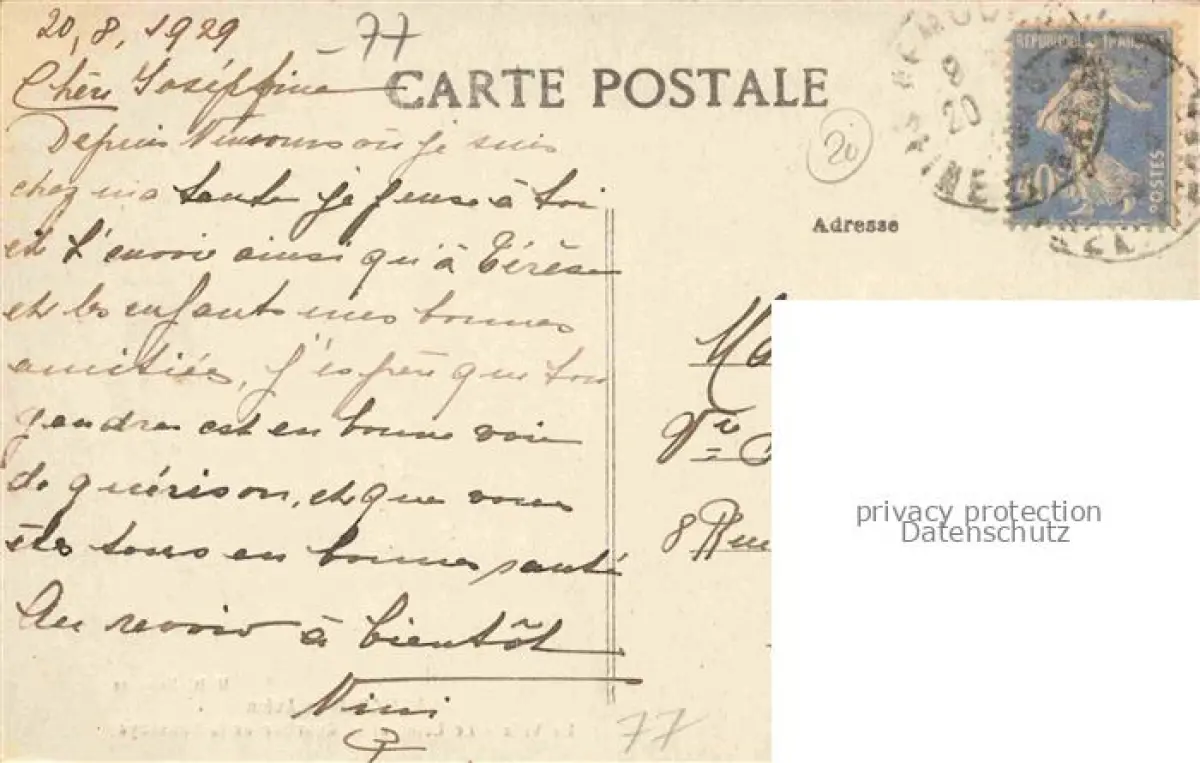 20, 8, 1929
77
CARTE POSTALE
Chère Joséphine
Depuis Nemours où je suis
chez ma tante je pense à toi
et t'envoie ainsi qu'à Térèse
et les enfants mes bonnes
amitiés, j'espère que ton
gendre est en bonne voie
de guérison, et que vous
êtes tous en bonne santé
Au revoir à bientôt
Nini
77
20
Adresse
REPUBLIQUE FRANÇAISE
POSTES
20
Ve
8 Rue
privacy protection
Datenschutz